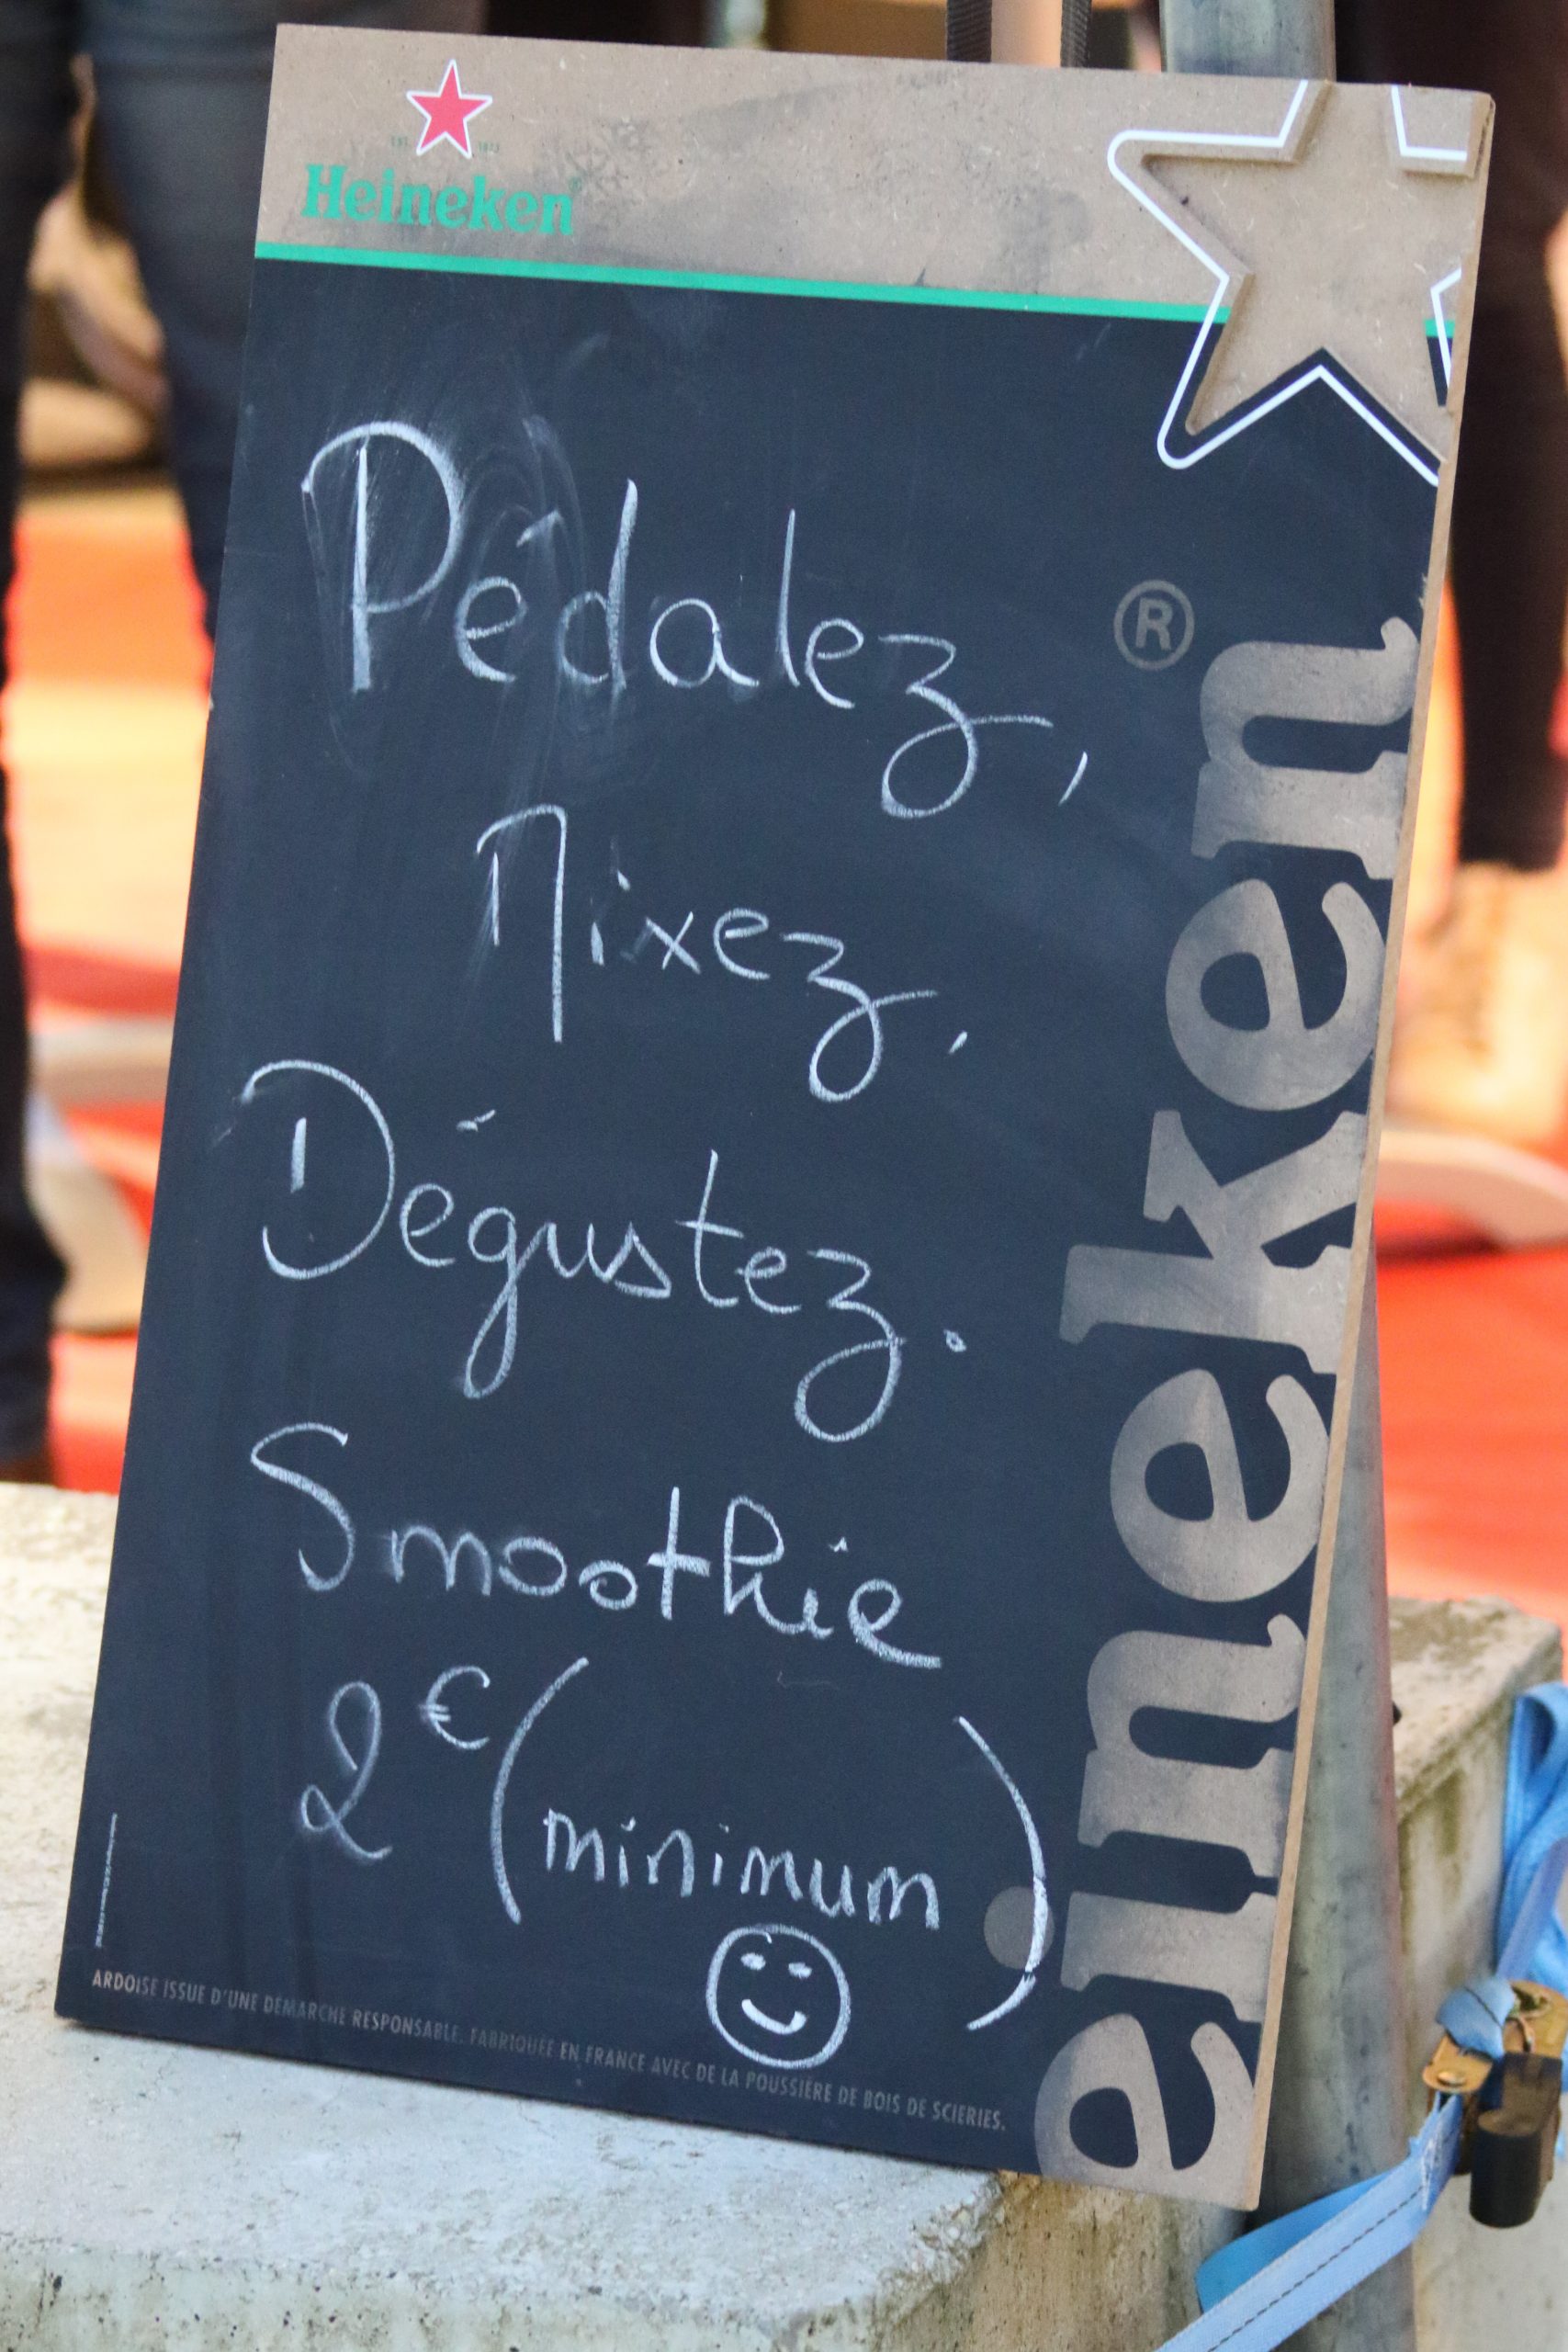 EST. 1873
Heineken
Pédalez,
Mixez,
Dégustez.
Smoothie
2€ (minimum)
ARDOISE ISSUE D'UNE DÉMARCHE RESPONSABLE. FABRIQUÉE EN FRANCE AVEC DE LA POUSSIÈRE DE BOIS DE SCIERIES.
eineken®